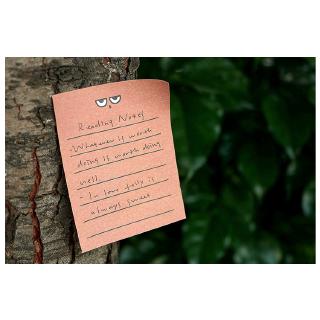 Reading Notes
-Whatever is worth
doing is worth doing
well
- In love folly is
always sweet